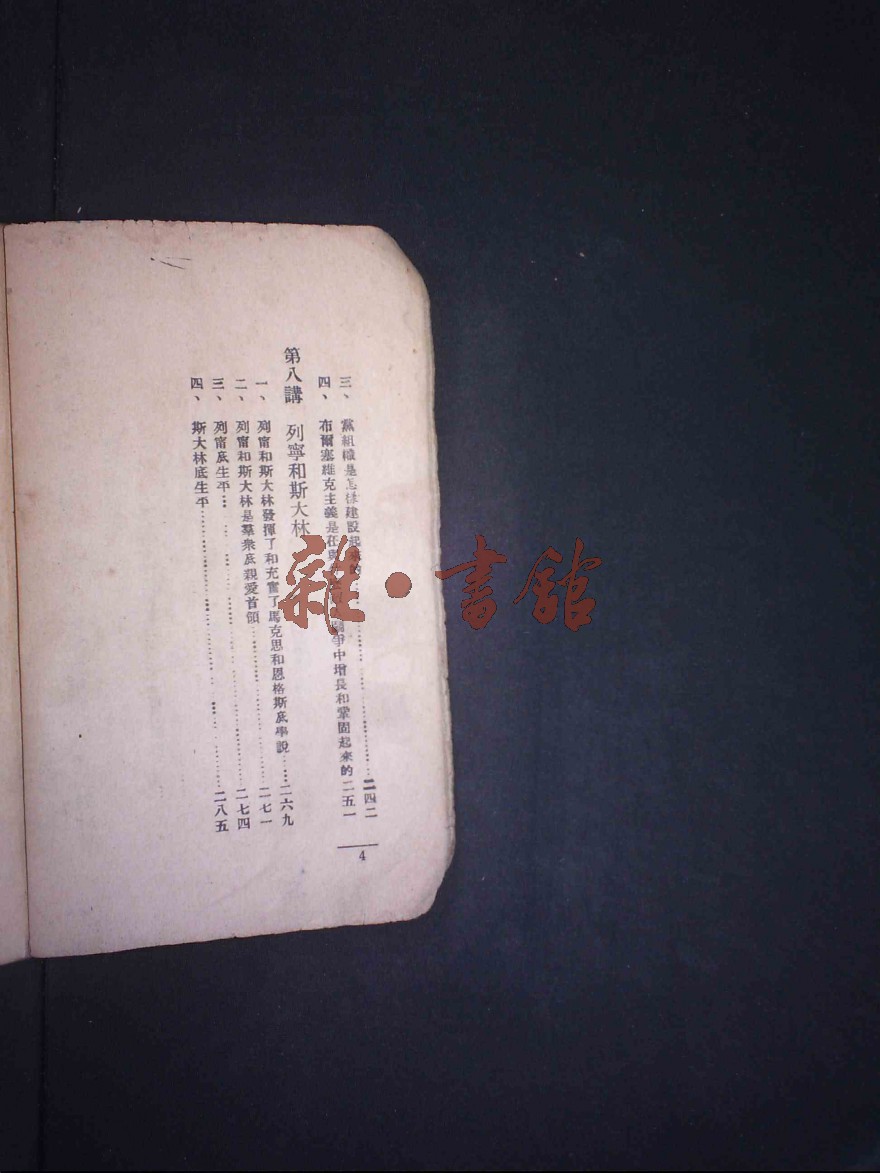 三、黨組織是怎樣建設起來的……二四二
四、布爾塞維克主義是在與 爭中增長和鞏固起來的二五一
第八講 列寧和斯大林
一、列甯和斯大林發揮了和充實了馬克思和恩格斯底學說……二六九
二、列甯和斯大林是羣衆底親愛首領……二七一
三、列甯底生平……二七四
四、斯大林底生平……二八五
4
雜·書館